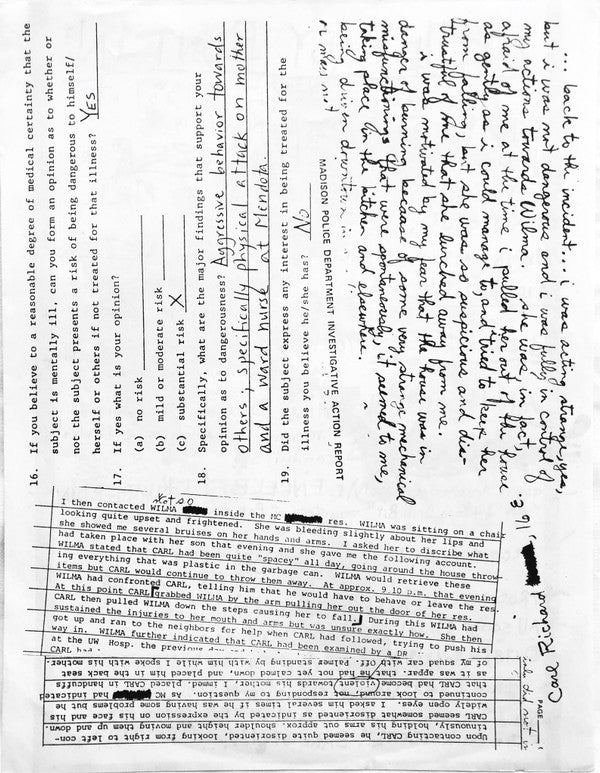 16. If you believe to a reasonable degree of medical certainty that the
subject is mentally ill, can you form an opinion as to whether or
not the subject presents a risk of being dangerous to himself/
herself or others if not treated for that illness? YES
17. If yes what is your opinion?
(a) no risk
(b) mild or moderate risk
(c) substantial risk X
18. Specifically, what are the major findings that support your
opinion as to dangerousness? Aggressive behavior towards
others, specifically physical attack on mother
and a ward nurse at Mendota.
19. Did the subject express any interest in being treated for the
illness you believe he/she has? No
MADISON POLICE DEPARTMENT INVESTIGATIVE ACTION REPORT
... back to the incident... i was acting strange, yes,
but i was not dangerous and i was fully in control of
my actions towards Wilma. she was in fact
afraid of me at the time i pulled her out of the house
as gently as i could manage to, and tried to keep her
from falling, but she was so suspicious and dis-
trustful of me that she lurched away from me.
i was motivated by my fear that the house was in
danger of burning because of some very strange mechanical
misfunctionings that were spontaneously, it seemed to me,
taking place in the kitchen and elsewhere.
being driven downtown in
not so
I then contacted WILMA inside the MC res. WILMA was sitting on a chair
looking quite upset and frightened. She was bleeding slightly about her lips and
she showed me several bruises on her hands and arms. I asked her to describe what
had taken place with her son that evening and she gave me the following account.
WILMA stated that CARL had been quite "spacey" all day, going around the house throw-
ing everything that was plastic in the garbage can. WILMA would retrieve these
items but CARL would continue to throw them away. At approx. 9:10 p.m. that evening
WILMA had confronted CARL, telling him that he would have to behave or leave the res.
At this point CARL grabbed WILMA by the arm pulling her out the door of her res.
CARL then pulled WILMA down the steps causing her to fall. During this WILMA had
sustained the injuries to her mouth and arms but was unsure exactly how. She then
got up and ran to the neighbors for help when CARL had followed, trying to push his
way in. WILMA further indicated that CARL had been examined by a DR
at the UW Hosp. the previous day
CARL had
Upon contacting CARL, he seemed quite disoriented, looking from right to left con-
tinuously, holding his arms out approx. shoulder height and moving them up and down.
CARL seemed somewhat disoriented as indicated by the expression on his face and his
widely open eyes. I asked him several times if he was having some problems but he
continued to look around, not responding to my question. As MC had indicated
that CARL had become violent towards his mother, I immed. placed CARL in handcuffs
as it was appar. that he had not yet calmed down and placed him in the back seat
of my squad car with Off. Palmer standing by with him while I spoke with his mother.
PAGE